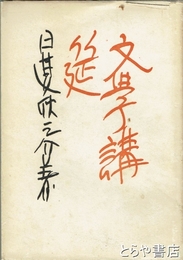 文学講
筵
日夏耿之介著
とらや書店